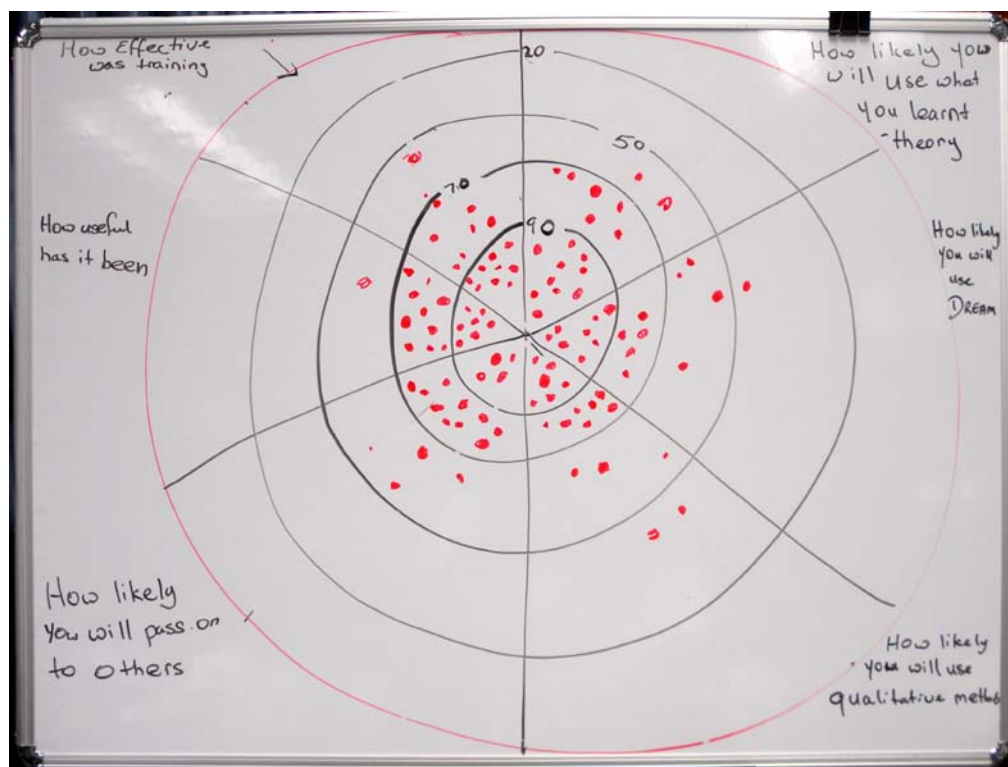 How Effective
was training
20
How likely you
will use what
you learnt
-theory
50
70
90
How useful
has it been
How likely
you will
use
DREAM
How likely
you will pass on
to others
How likely
you will use
qualitative method